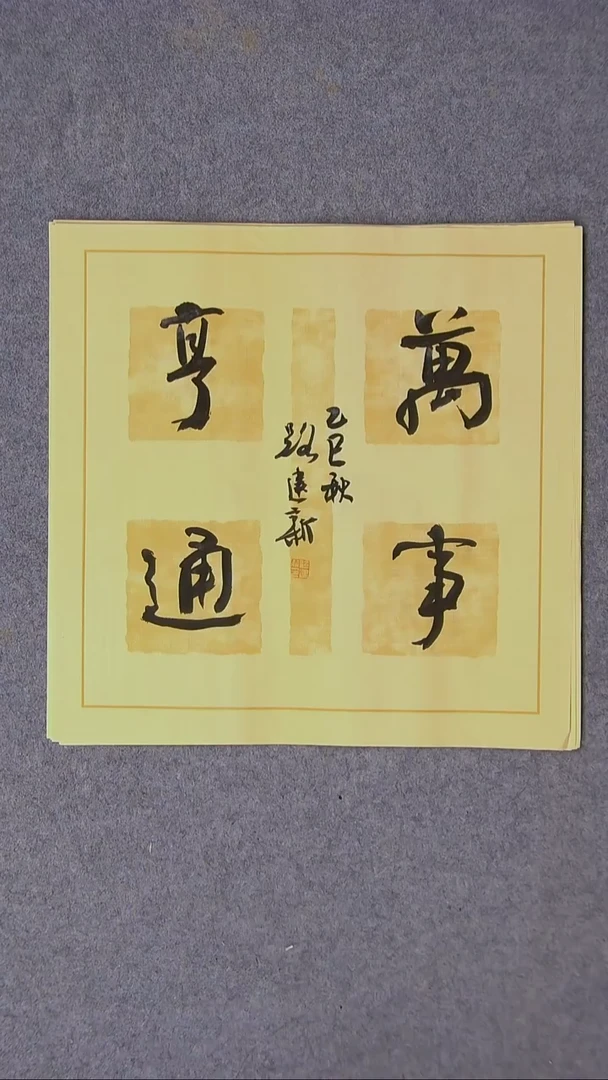 萬事
亨通
乙巳秋
路建新